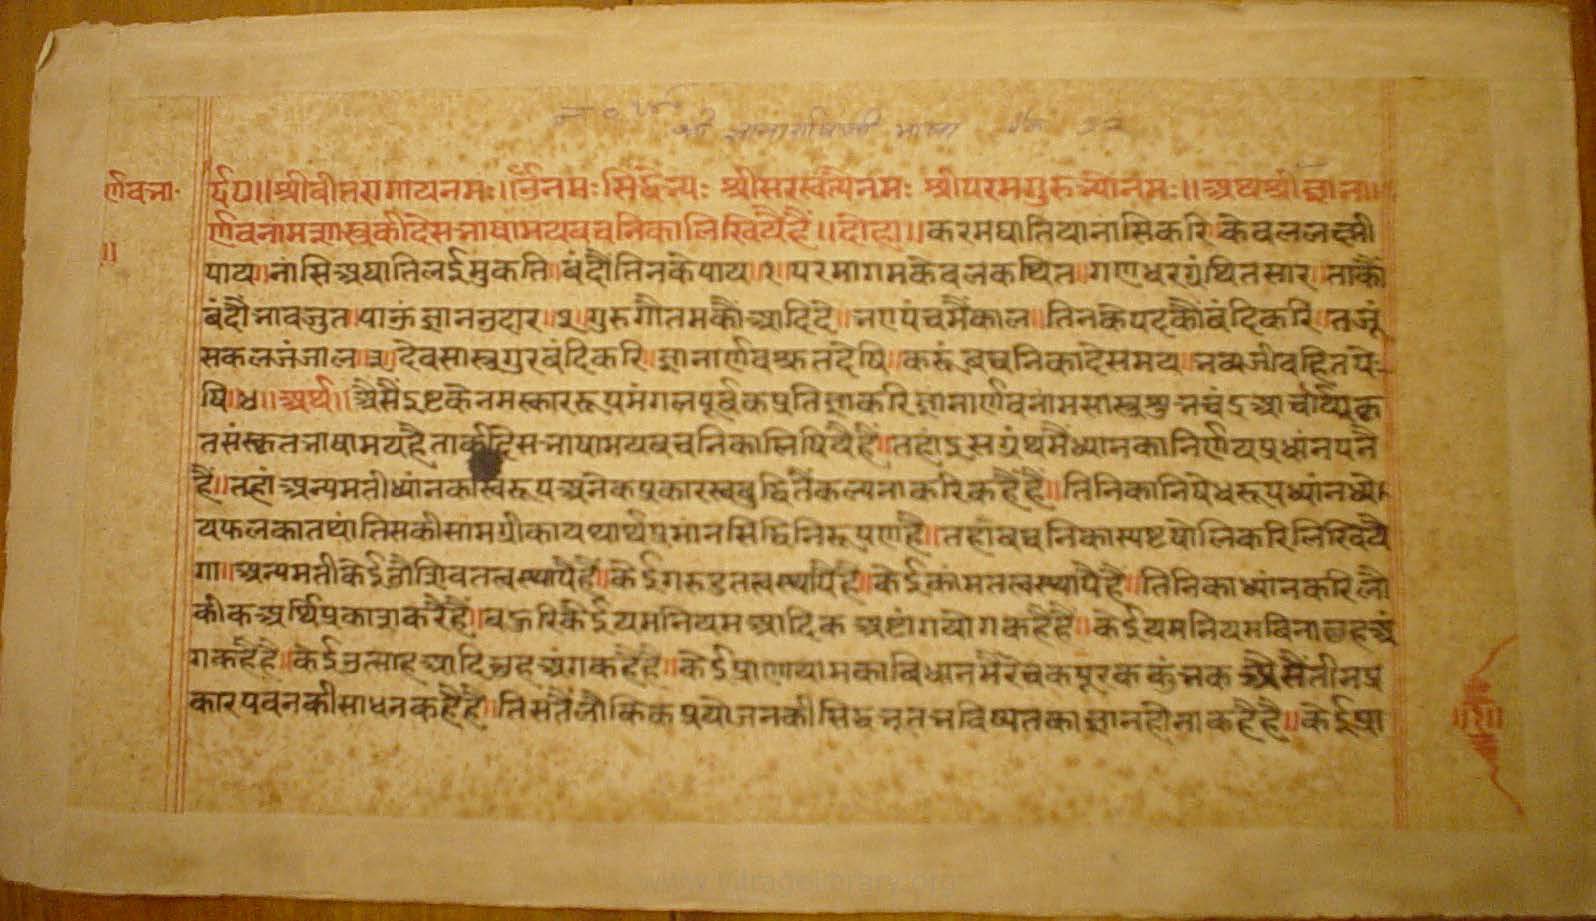 श्री ज्ञानार्णवजी भाषा
र्णवभा॰
॥श्रीवीतरागायनमः॥ॐनमःसिद्धेभ्यः श्रीसरस्वत्यैनमः श्रीपरमगुरुभ्योनमः॥अथश्रीज्ञाना॥
र्णवनामशास्त्रकीदेसभाषामयवचनिकालिखियैहैं॥दोहा॥करमघातियानासिकरि केवललक्ष्मी
पाय॥नासिअघातिलईमुकति॥बंदौंतिनकेपाय॥१॥परमागमकेवलकथित॥गणधरग्रंथितसार॥ताकौं
बंदौंभावजुत॥पाऊंज्ञानउदार॥२॥गुरुगौतमकौंआदिदे॥भएपंचमैंकाल॥तिनकेपदकौंबंदिकरि॥तजूं
सकलजंजाल॥३॥देवसास्त्रगुरबंदिकरि॥ज्ञानार्णवश्रुतदेषि॥करूंवचनिकादेसमय॥भव्यजीवहितपे
षि॥४॥अर्थ॥ऐसैंइष्टकैनमस्काररूपमंगलपूर्वकप्रतिज्ञाकरिज्ञानार्णवनामसास्त्रशुभचंद्रआचार्यकृ
तसंस्कृतभाषामयहैताकीदेसभाषामयवचनिकालिषियैहैं॥तहांइसग्रंथमैंध्यानकानिर्णयप्रधांनपनै
हैं॥तहांअन्यमतीध्यांनकास्वरूपअनेकप्रकारस्वबुद्धितैंकल्पनाकरिकहैंहैं॥तिनिकानिषेधरूपध्यांनध्ये
यफलकातथांतिसकीसामग्रीकायथार्थप्रमानसिद्धिनिरूपणहै॥तहांवचनिकास्पष्टषोलिकरिलिखियै
गा॥अन्यमतीकेईतौशिवतत्वस्थापैहैं॥केईगरुडतत्वस्थापैहैं॥केईकांमतत्वस्थापैहैं॥तिनिकाध्यांनकरिलौ
कीकअर्थिप्रकाशकरैहैं॥बहुरिकेईयमनियमआदिकअष्टांगयोगकहैंहैं॥केईयमनियमविनाछहअं
गकहैहैं॥केईउत्साहआदिछहअंगकहैहैं॥केईप्राणायामकाविधानमैंरेचकपूरककुंभकऐसैंतीनप्र
कारपवनकीसाधनकहैहैं॥तिसतैंलौकिकप्रयोजनकीसिद्धभूतभविष्यतकाज्ञानहोनाकहैहैं॥केईप्रा